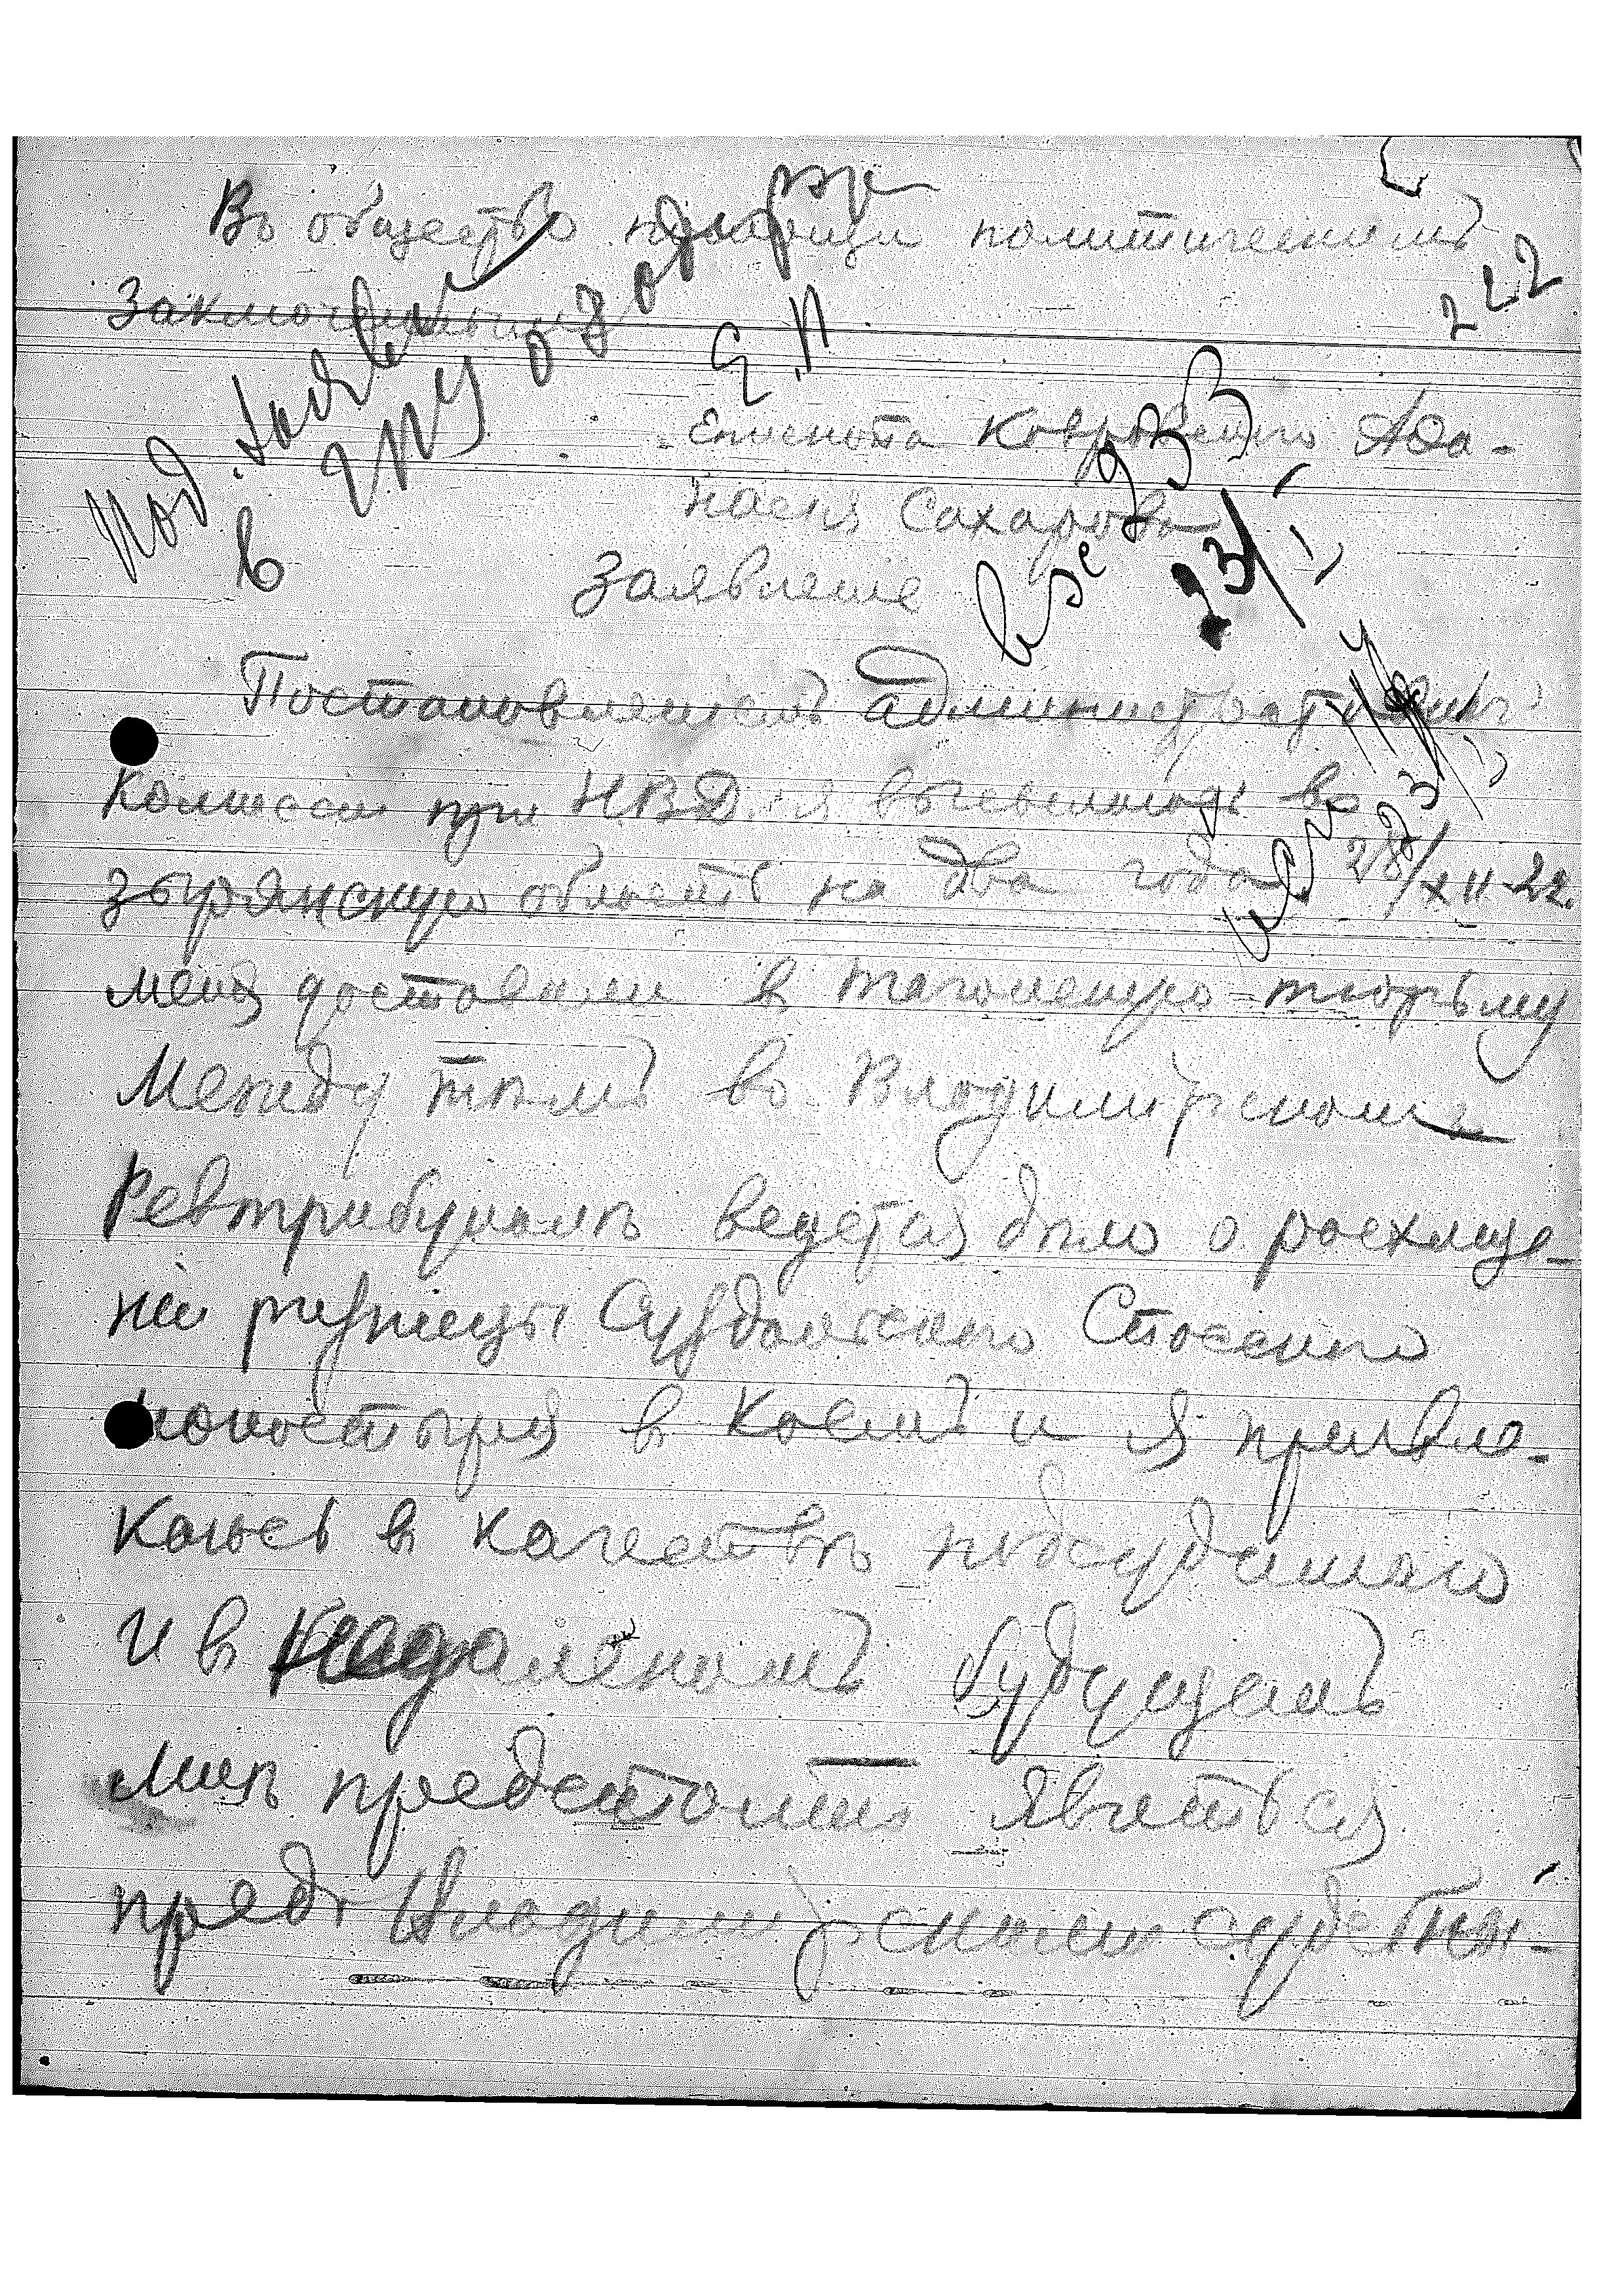 Въ общество помощи политическимъ
222
заключеннымъ
Епископа Ковровскаго Аѳа-
насiя Сахарова
Заявленiе
Постановленiемъ административн.
Комиссiи при НВД. я высылаюсь въ
Зырянскую область на два года 28/XII-22.
меня доставили в таганскую тюрьму
Между тѣмъ въ Владимiрскомъ
Ревтрибуналѣ ведется дѣло о расхище-
нiи ризницы Суздальскаго Спасскаго
монастыря в коемъ и я привле-
каюсь в качествѣ подсудимаго
и в недалекомъ будущемъ
мнѣ предстоитъ явиться
предъ Владимiрскимъ судебны-